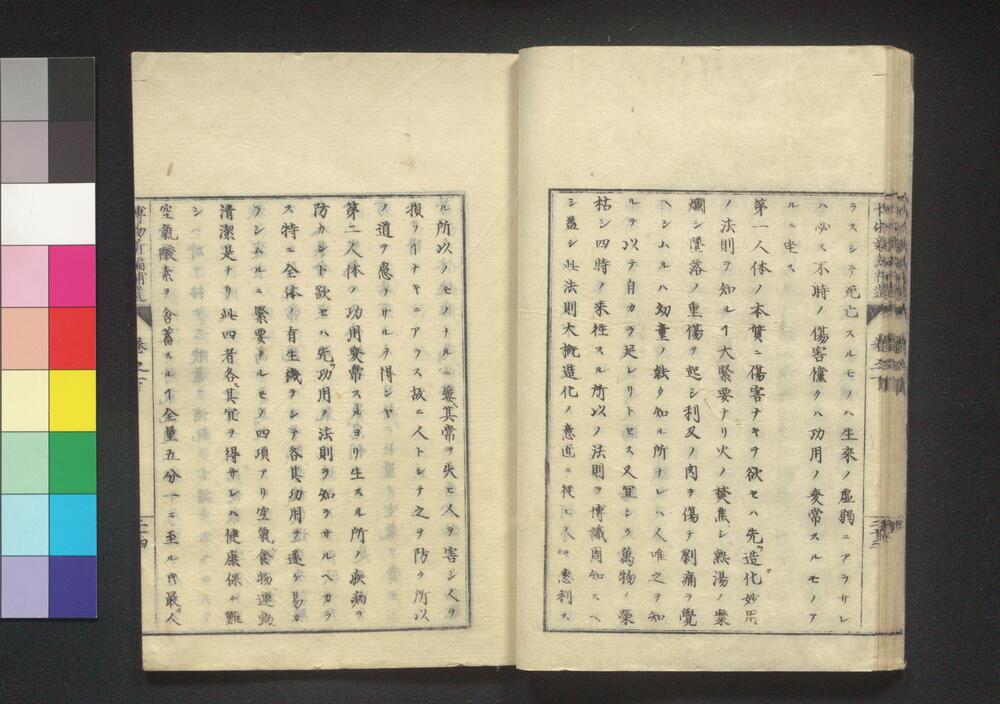 ラスシテ死亡スルモノハ生来ノ虚弱ニアラサレ
ハ必ス不時ノ傷害儻クハ功用ノ変常スルモノア
ルニ由ス
第一人体ノ本質ニ傷害ナキヲ欲セハ先造化妙用
ノ法則ヲ知ルヿ大緊要ナリ火ノ焚焦シ熱湯ノ
爛シ墜落ノ重傷ヲ起シ利刃ノ肉ヲ傷テ割痛ヲ覺
ヘシムルハ幼童ノ能ク知ル所ナレハ人唯之ヲ知
ルヲ以テ自カラ足レリトセス又宜シク萬物ノ榮
枯シ四時ノ来往スル所以ノ法則ヲ博識周知スヘ
シ蓋シ此法則大概造化ノ意近ニ從ヒ人ヲ惠利ス
ル所以ノモノナルニ其常ヲ失ヒ人ヲ害シ人ヲ
損ラィナキニアラス故ニ人トシテ之ヲ防ク所以
ノ道ヲ慮ラサルヲ得ンヤ
第二人体ノ功用変常スルヨリ生スル所ノ疾病ヲ
防カント欲セハ先功用ノ法則ヲ知ラサルヘカラ
ス特ニ全体ノ有生機ヲシテ各其功用ヲ遂ケ易カ
ラシムルニ緊要ナルモノ四項アリ空氣食物運動
清潔是ナリ此四者各其宜ヲ得サレハ健康保ヶ難
シ
空氣酸素ヲ含蓄スルヿ全量五分一ニ至ル氏最人
博物新編補遺 巻之下 二十四